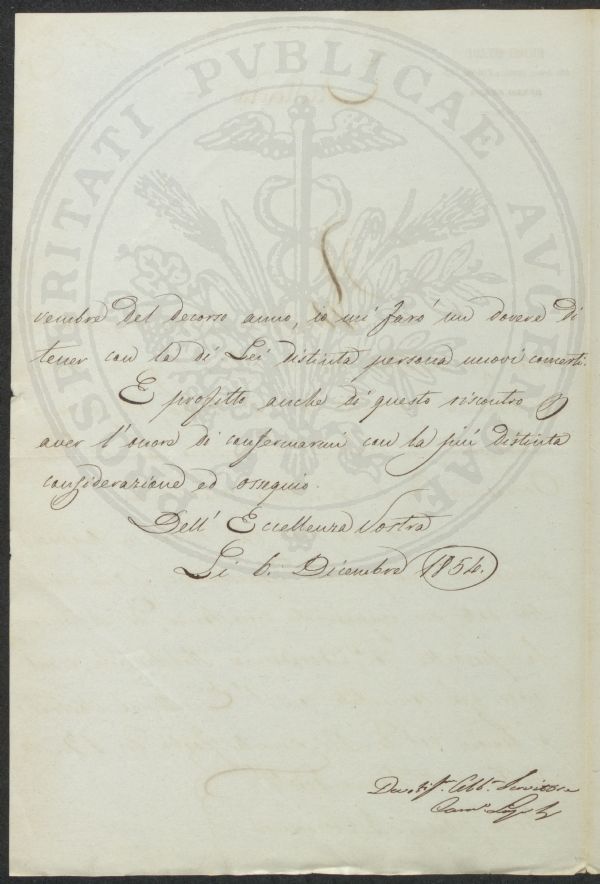 PROSPERITATI PVBLICAE AVGENDAE
vembre del decorso anno, io mi farò un dovere di
tener con la di Lei distinta persona nuovi concerti.
E profitto anche di questo riscontro p
aver l'onore di confermarmi con la più distinta
considerazione ed ossequio.
Dell' Eccellenza Vostra
Li 6. Dicembre 1854.
Devotis. Obb. Servitore